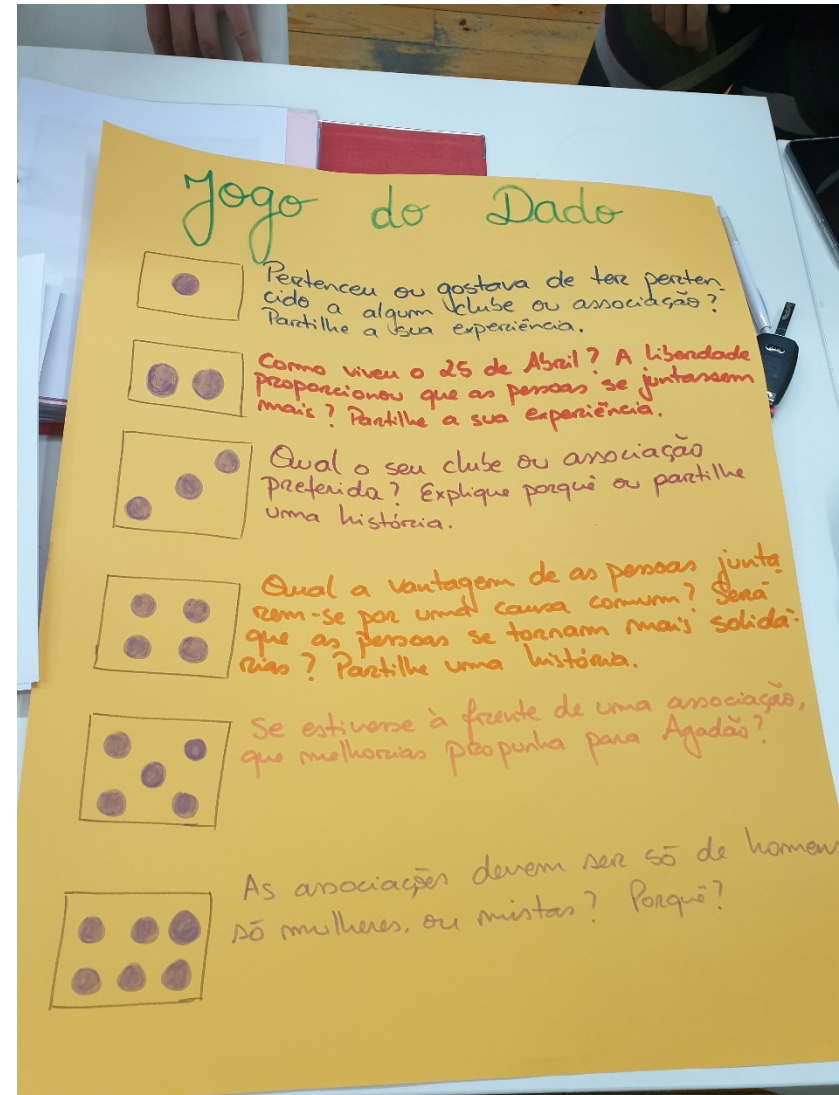 Jogo do Dado
Pertenceu ou gostava de ter perten-
cido a algum clube ou associação?
Partilhe a sua experiência.
Como viveu o 25 de Abril? A liberdade
proporcionou que as pessoas se juntassem
mais? Partilhe a sua experiência.
Qual o seu clube ou associação
preferida? Explique porquê ou partilhe
uma história.
Qual a vantagem de as pessoas junta
rem-se por uma causa comum? Será
que as pessoas se tornam mais solidá-
rias? Partilhe uma história.
Se estivesse à frente de uma associação,
que melhorias propunha para Agadão?
As associações devem ser só de homens
só mulheres, ou mistas? Porquê?